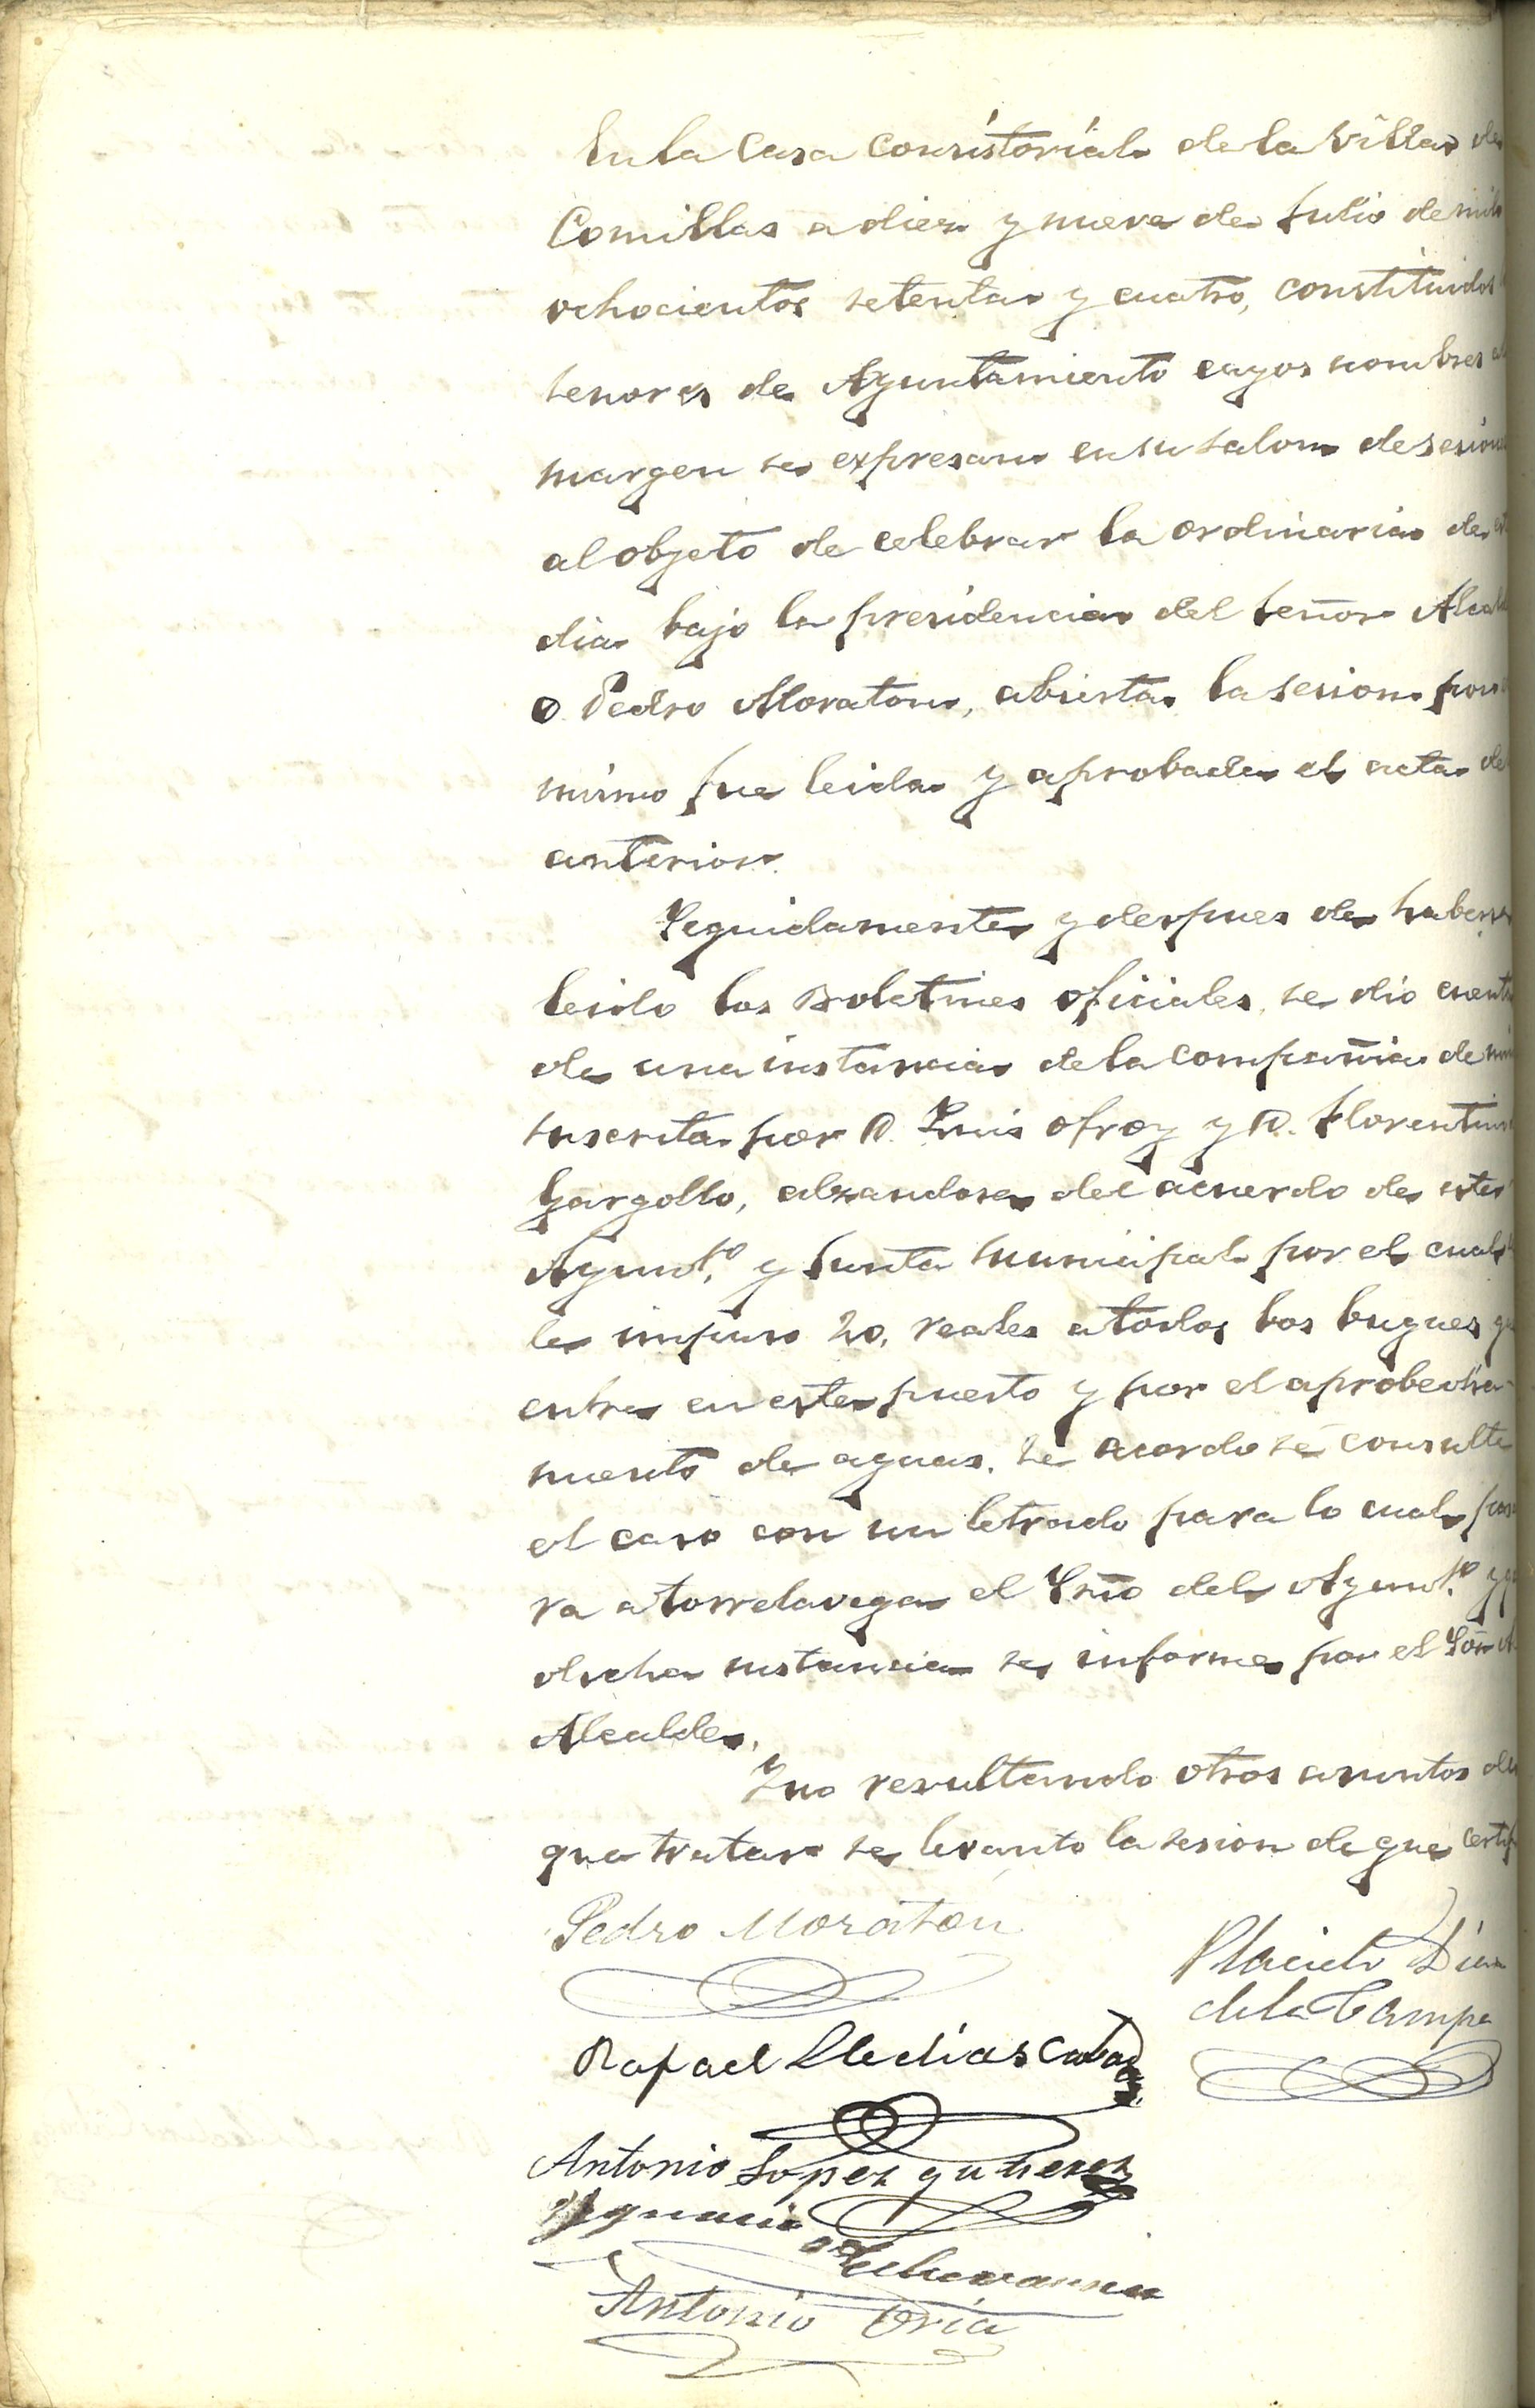 En la Casa Consistorial de la Villa de
Comillas a diez y nueve de Julio de mil
ochocientos setenta y cuatro, constituidos
señores de Ayuntamiento cuyos nombres al
margen se expresan en su salon de sesion
al objeto de celebrar la ordinaria de
dia bajo la presidencia del señor Alcal
D. Pedro Moraton, abierta la sesion por
mismo fue leida y aprobada el acta de
anterior.
Seguidamente y despues de haberse
leido los Boletines oficiales, se dio cuenta
de una instancia de la compañia de mi
suscrita por D. Luis Ofroy y D. Florentino
Gargollo, alzandose del acuerdo de este
Ayunto. y Junta municipal por el cual
le impuso 20, reales a todos los buques q
entra en este puesto y por el aprobecha-
miento de aguas. Se acordo se consulte
el caso con un letrado para lo cual pasa
ra a torrelavega el Srio del Ayunto. y q
dicha instancia se informe por el Sor
Alcalde.
Y no resultando otros asuntos de
que tratar se levanto la sesion de que certif
Pedro Moraton
Placido Diaz
de la Campa
Rafael Lledias
Antonio Lopez gutierrez
Ygnacio
Antonio Oria